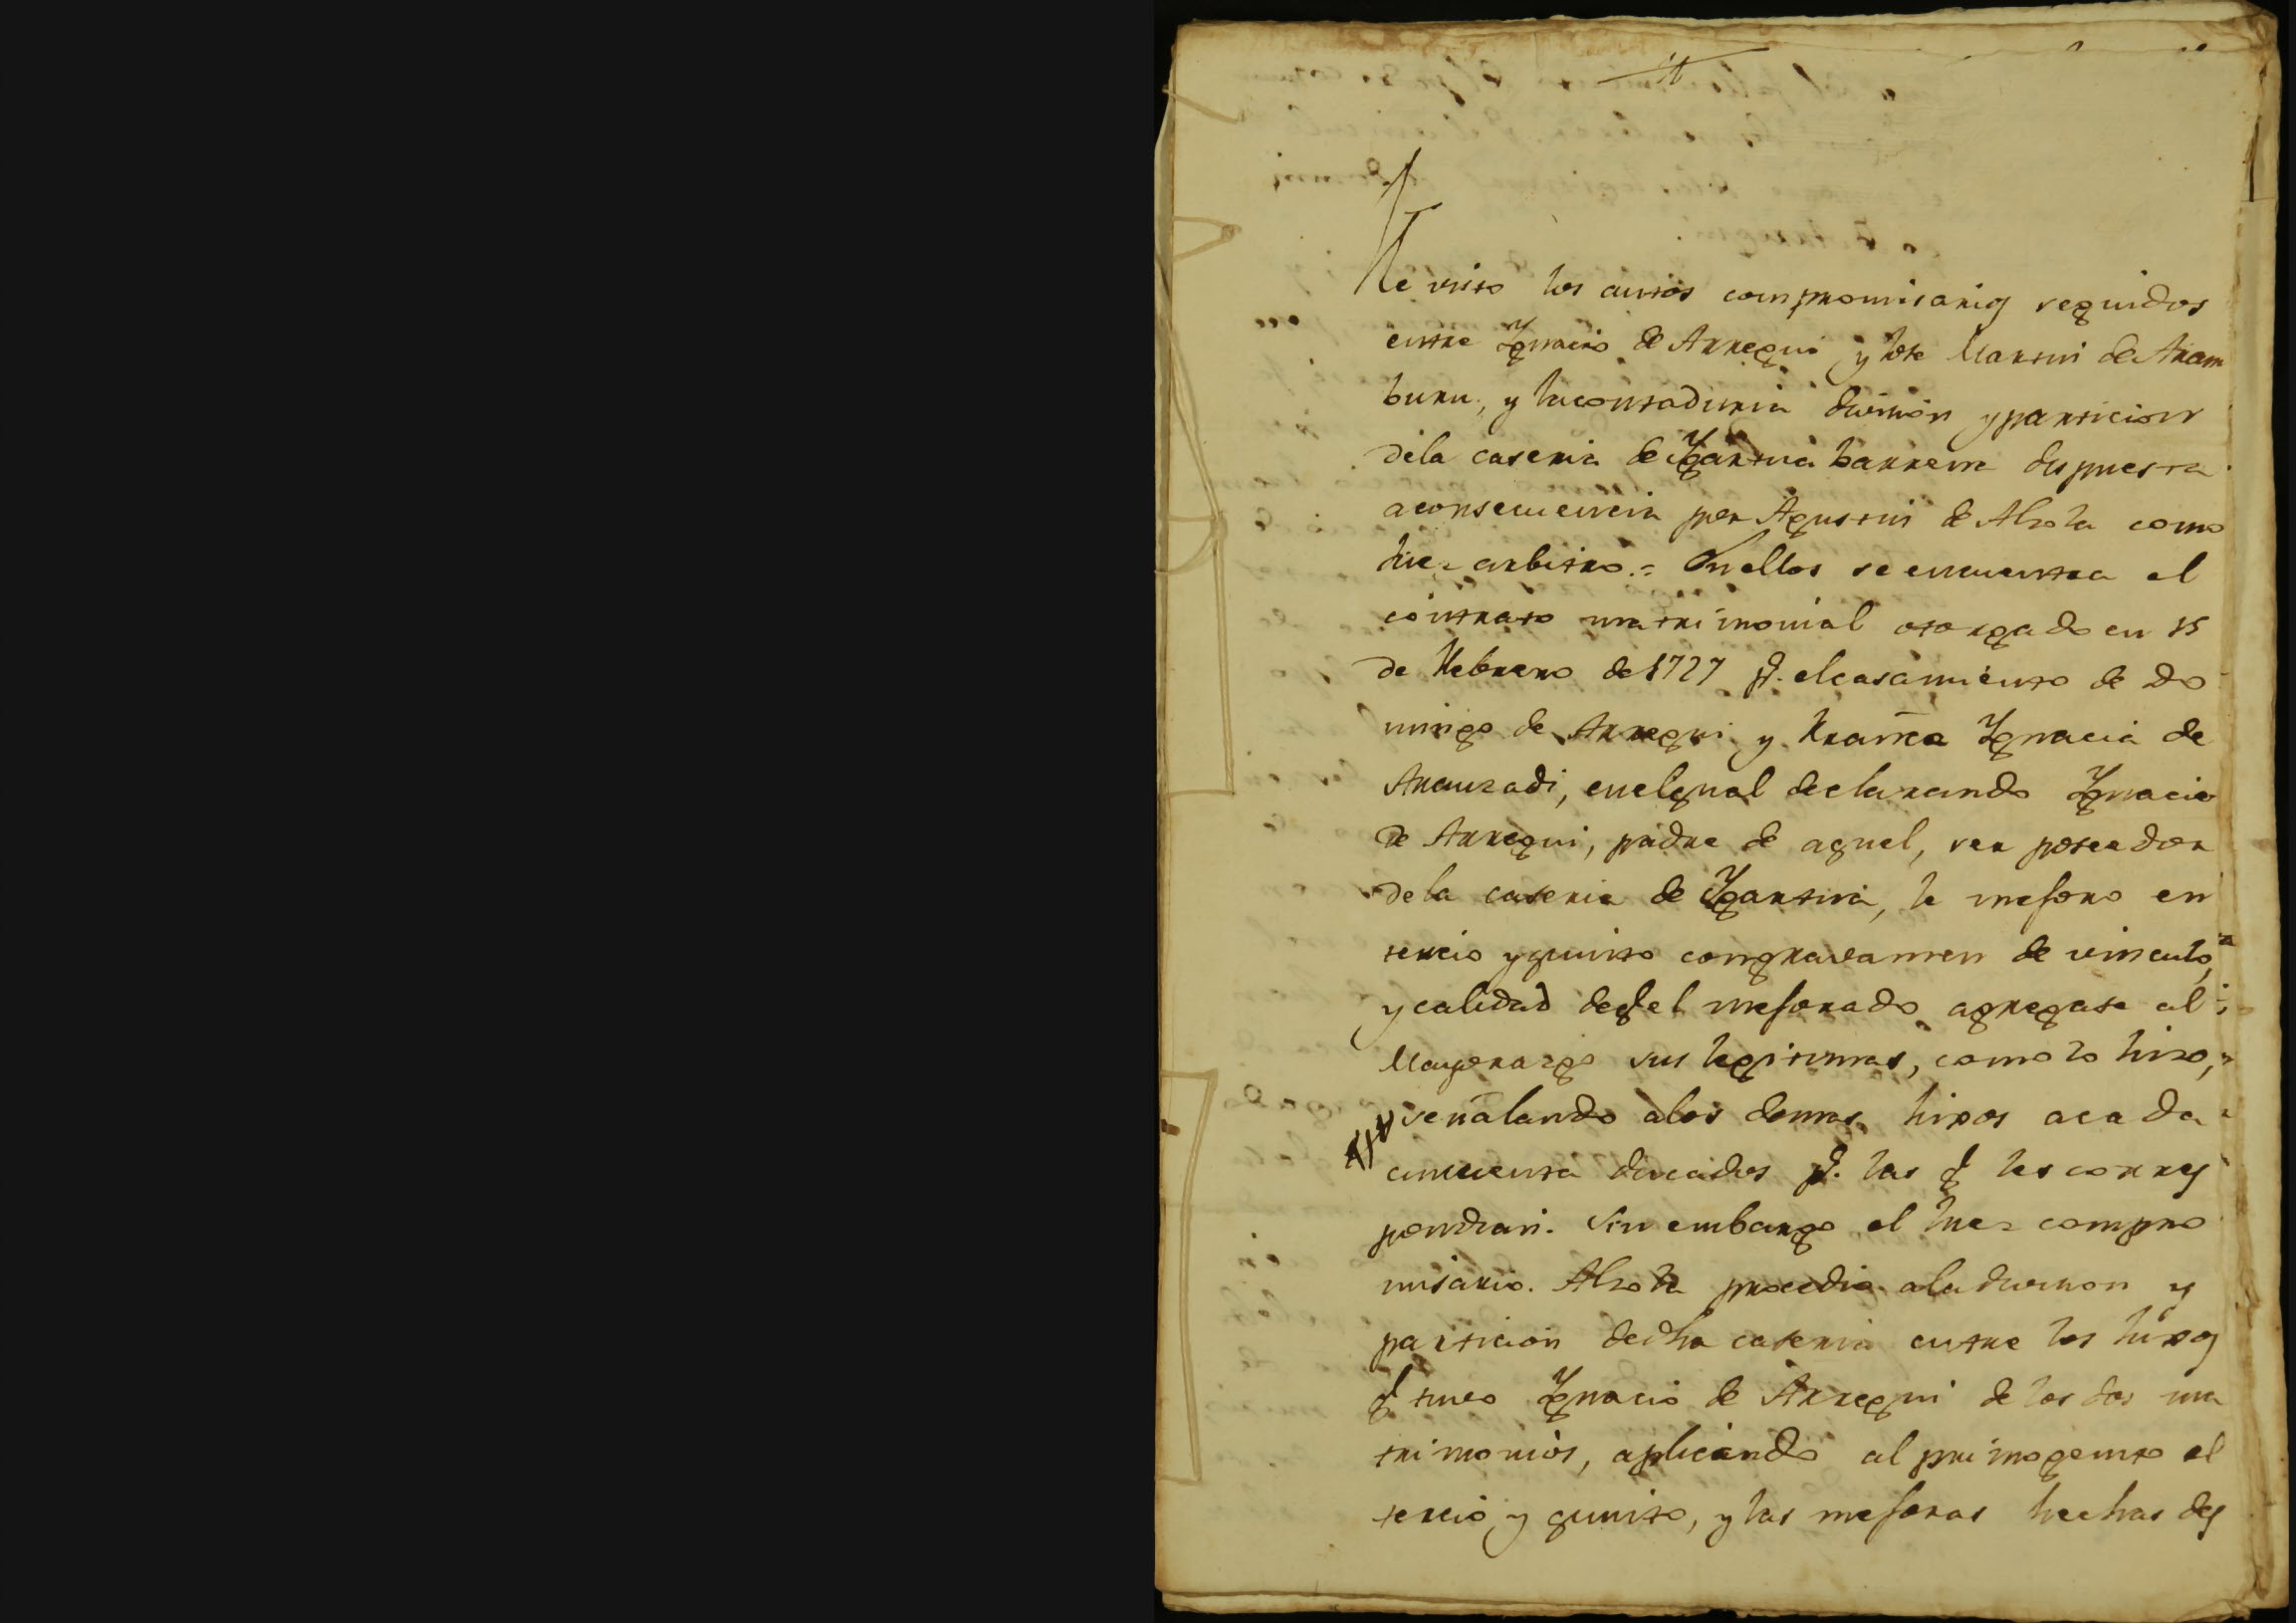 He visto los autos compromisarios seguidos
entre Ygnacio de Arregui y Jose Martin de Aram
buru, y la contaduria division y particion
de la caseria de Ygartua barrena dispuesta
a consecuencia por Agustin de Alzola como
Juez arbitro = En ellos se encuentra el
contrato matrimonial otorgado en 15
de Hebrero de 1727 pª. el casamiento de Do
mingo de Arregui y Franca Ygnacia de
Aranzadi, en el qual declarando Ygnacio
de Arregui, padre de aquel, ser poseedor
de la caseria de Ygartua, le mejoro en
tercio y quinto con gravamen de vinculo,
y calidad de q̃ el mejorado agregase al
Mayorazgo sus legitimas, como lo hizo,
señalando a los demas hixos a cada
cincuenta ducados pr. las q̃ les corres
pondian. Sin embargo el Juez compro
misario Alzola procedio a la division y
particion de dha caseria entre los hixos
q̃ tuvo Ygnacio de Arregui de los dos ma
trimonios, aplicando al primogenito el
tercio y quinto, y las mejoras hechas des